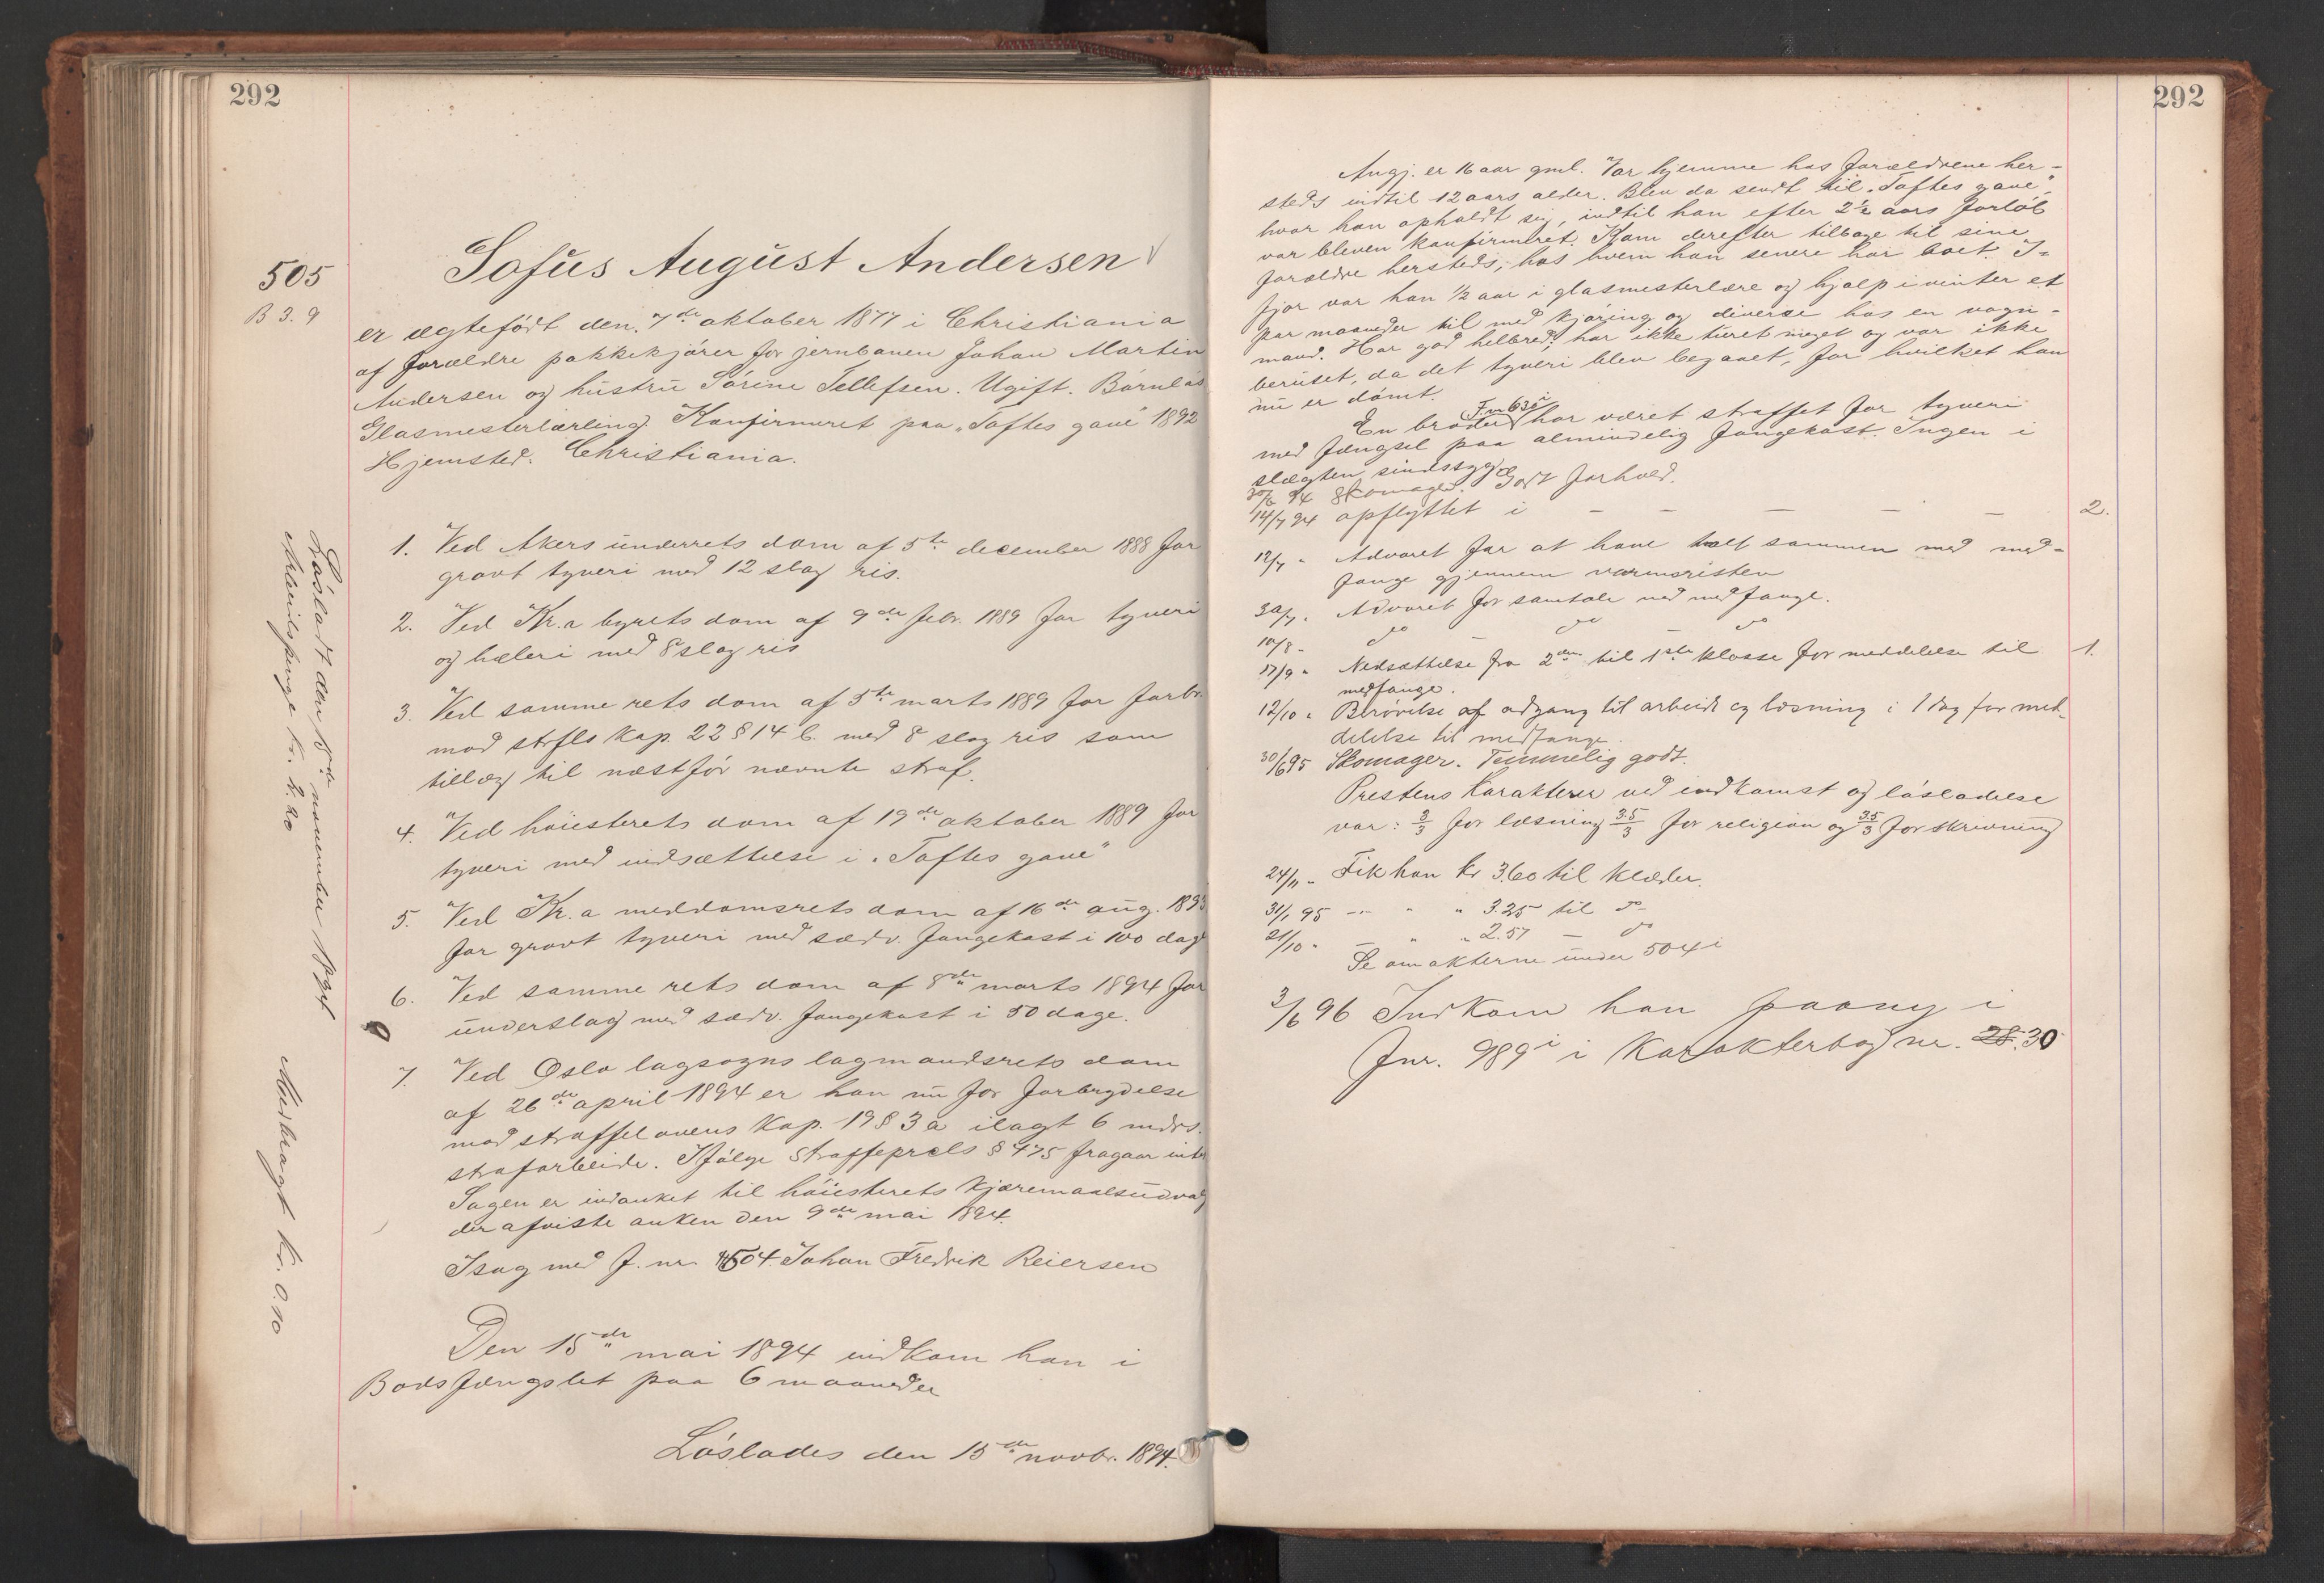 292
505
B 3. 9
Sofus August Andersen
er ægtefödt den 7de oktober 1877 i Christiania
af forældre pakkekjörer for jernbanen Johan Martin
Andersen og hustru Sörine Tellefsen. Ugift. Barnlös
Glasmesterlærling. Konfirmeret paa "Toftes gave" 1892
Hjemsted: Christiania.
1. Ved Akers underrets dom af 5te december 1888 for
grovt tyveri med 12 slag ris.
2. Ved Kr.a byrets dom af 9de febr. 1889 for tyveri
og hæleri med 8 slag ris
3. Ved samme rets dom af 5te marts 1889 for forbr.
mod strfls kap. 22 § 14 b. med 8 slag ris som
tillæg til næstför nævnte straf.
4. Ved höiesterets dom af 19de oktober 1889 for
tyveri med indsættelse i "Toftes gave"
5. Ved Kr.a meddomsrets dom af 16de aug. 1893
for grovt tyveri med sædv. fangekost i 100 dage
6. Ved samme rets dom af 8de marts 1894 for
underslag med sædv. fangekost i 50 dage.
7. Ved Oslo lagsogns lagmandsrets dom
af 26de april 1894 er han nu for forbrydelse
mod straffelovens kap. 19 § 3 a ilagt 6 mdrs.
strafarbeide. Ifölge straffeprcls § 475 fragaar intet
Sagen er indanket til höiesterets kjæremaalsudvalg
der afviste anken den 9de mai 1894.
Isag med f. nr. 504 Johan Fredrik Reiersen
Den 15de mai 1894 indkom han i
Bodsfængslet paa 6 maaneder
Löslades den 15de novbr. 1894.
Lösladt den 15de november 1894
Arbeidspenge kr. 2.20
Medbragt kr. 0.10
292
Angj. er 16 aar gml. Var hjemme hos forældrene her-
steds indtil 12 aars alder. Blev da sendt til "Toftes gave",
hvor han opholdt sig, indtil han efter 2½ aars forlöb
var bleven konfirmeret. Kom derefter tilbage til sine
forældre hersteds, hos hvem han senere har boet. I-
fjor var han ½ aar i glasmesterlære og hjalp i vinter et
par maaneder til med kjöring og diverse hos en vogn-
mand. Har god helbred, har ikke turet meget og var ikke
beruset, da det tyveri blev begaaet, for hvilket han
nu er dömt.
F. nr 630
En broder har været straffet for tyveri
med fængsel paa almindelig fangekost. Ingen i
slægten sindssyge
30/6 94 Skomager. Godt forhold.
14/7 94 opflyttet i – – – – – 2.
12/7 " Advaret for at have talt sammen med med-
fange gjennem varmeristen
30/7 " Advaret for samtale med medfange.
10/8 " do – do – do
17/9 " Nedsættelse fra 2den til 1ste klasse for meddelelse til 1.
medfange.
12/10 " Berövelse af adgang til arbeide og læsning i 1 dag for med-
delelse til medfange.
30/6 95 Skomager. Temmelig godt.
Prestens karakterer ved indkomst og lösladelse
var: 3/3 for læsning 3.5/3 for religion og 3.5/3 for skrivning
24/11 " Fik han kr 3.60 til klæder.
31/1 95 –"– " " 3.25 til do
21/10 " – " " 2.57 – do
Se om akterne under 504 i
3/6 96 Indkom han paany i
fnr. 989 i i karakterbog nr. 28. 30